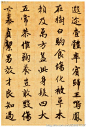 遐邇壹體率賓歸王鳴鳳
在樹白駒食場化被草木
賴及萬方蓋此身髮四大
五常恭惟鞠養豈敢毀傷
女慕貞潔男效才良知過